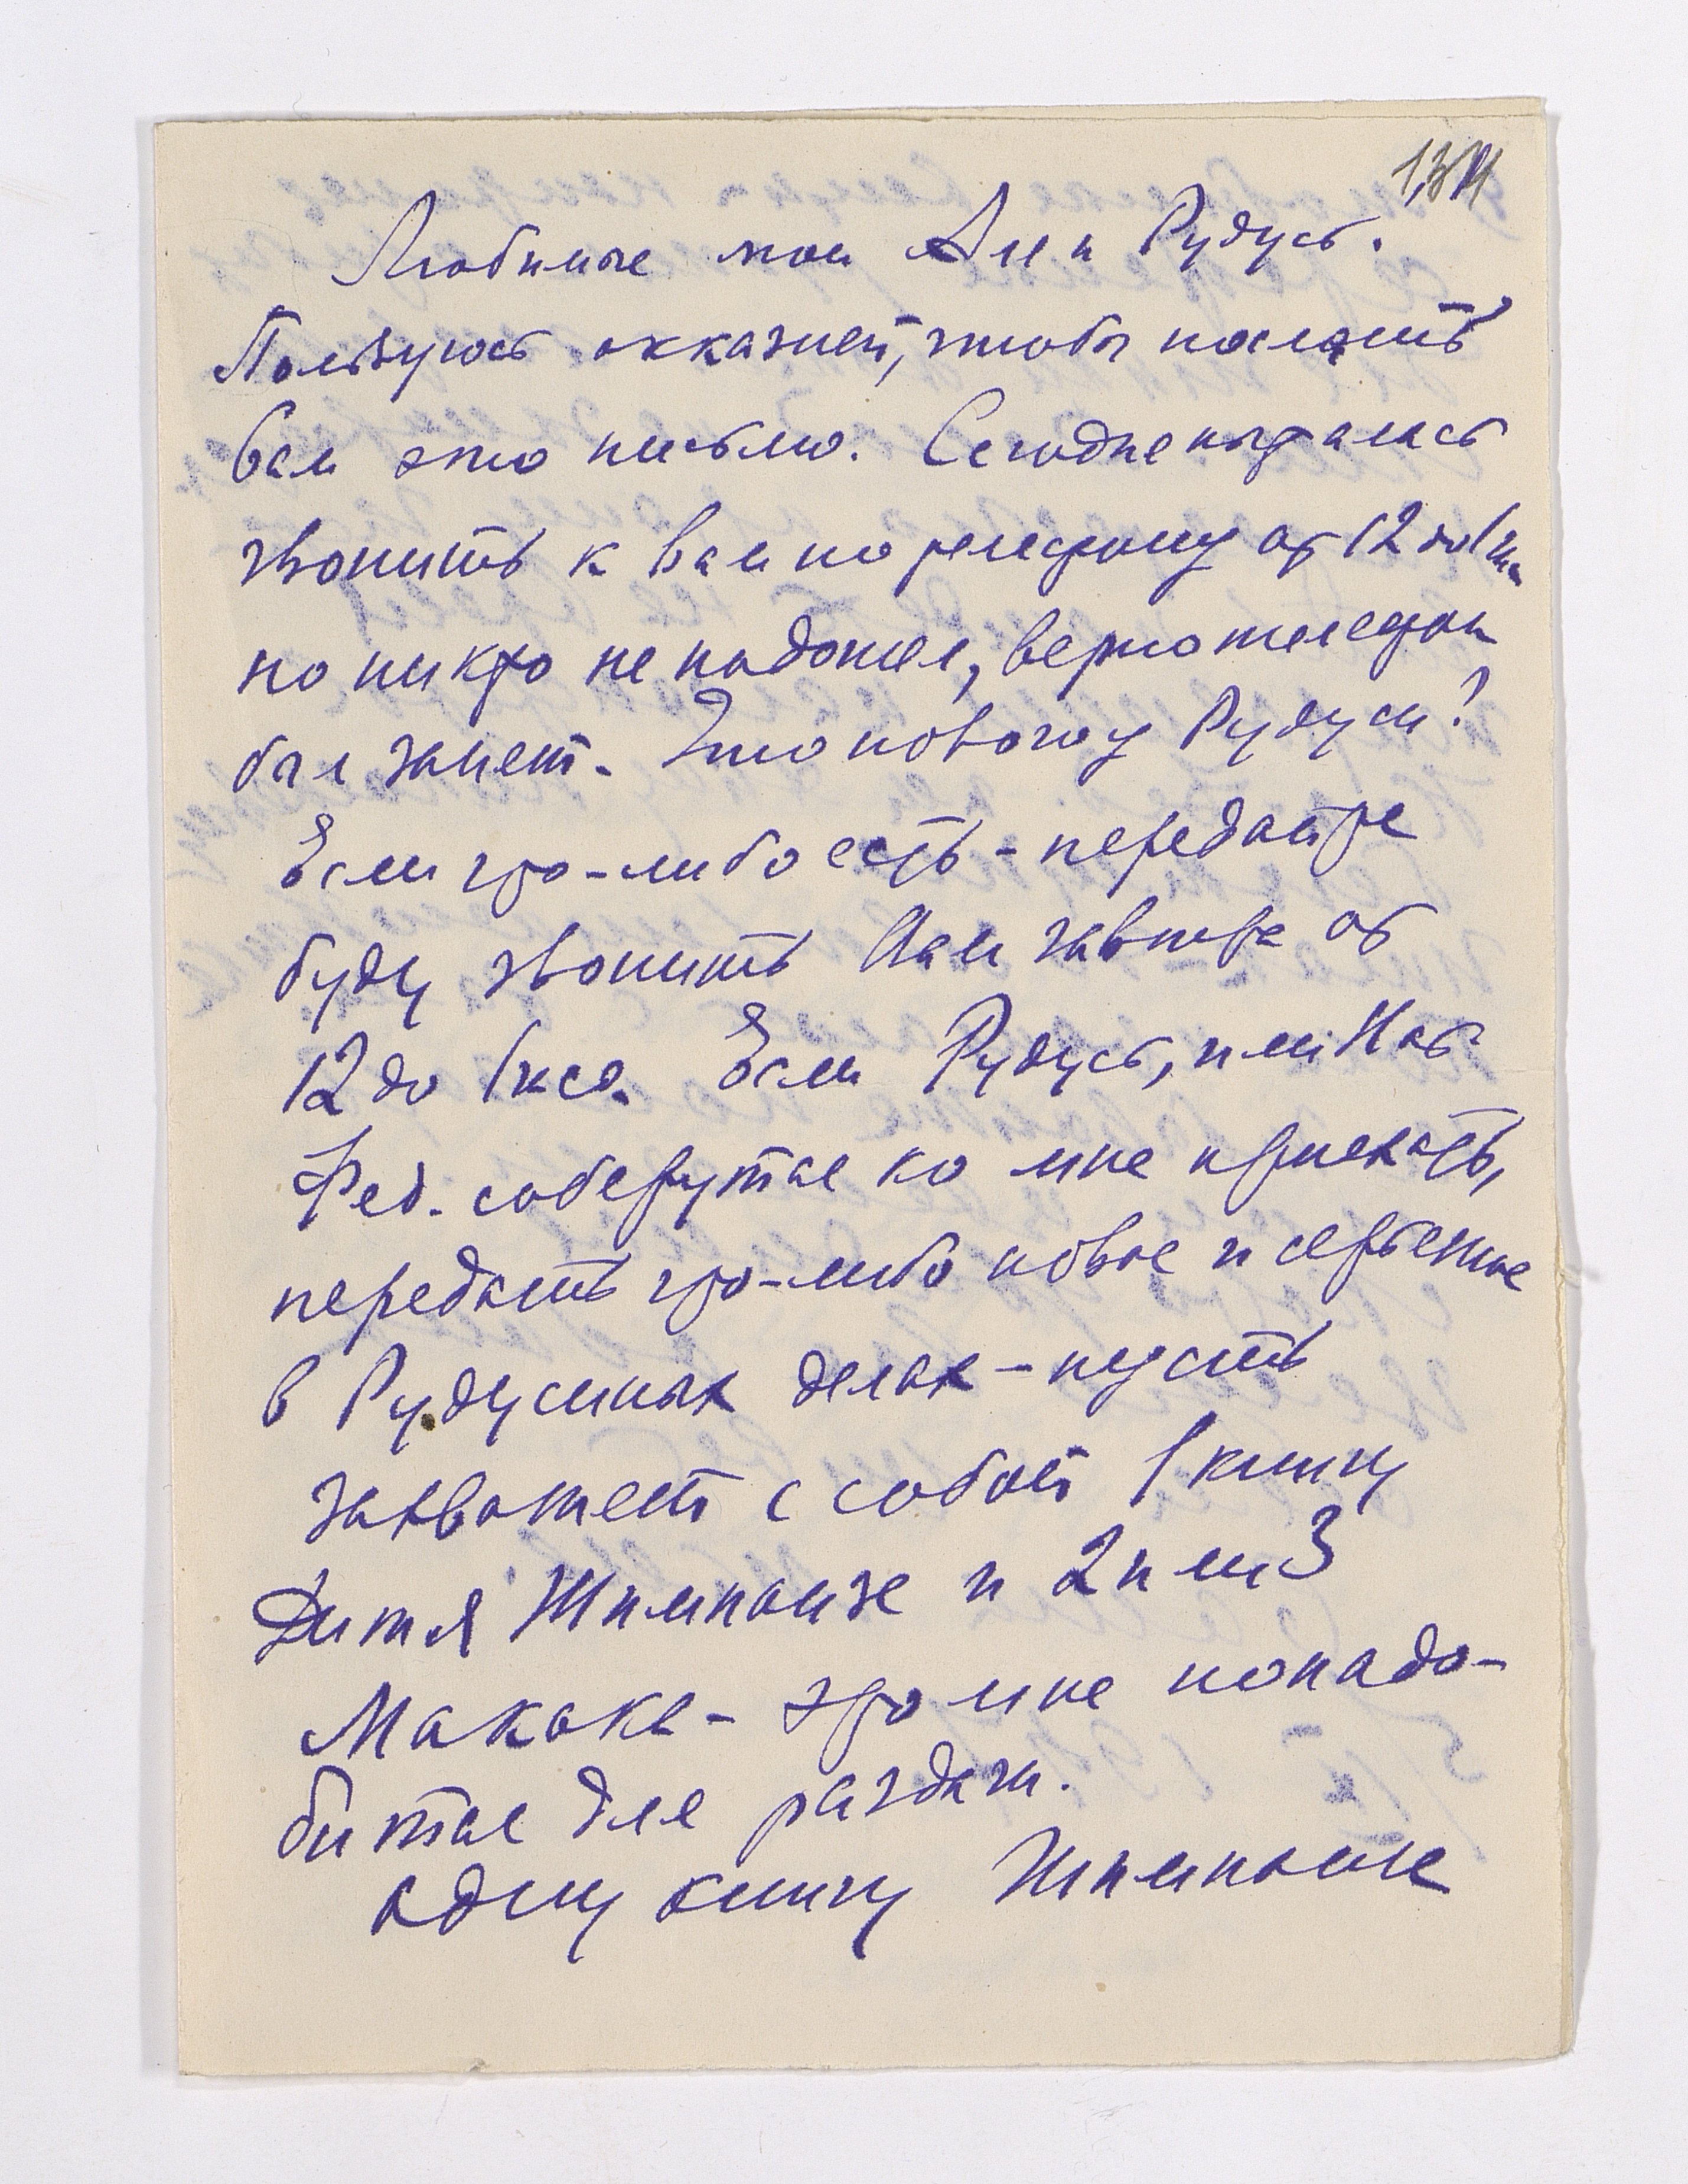 Любимые мои Аля и Рудусь.
Пользуюсь окказией, чтобы послать
Вам это письмо. Сегодня пыталась
звонить к Вам по телефону от 12 до 1 ч.
но никто не подошел, верно телефон
был занят. Что нового у Рудуси?
Если что-либо есть - передайте
буду звонить Вам завтра от
12 до 1 часа. Если Рудусь, или Над.
Фед. соберутся ко мне приехать,
передать что-либо новое и серьезное
в Рудусиных делах - пусть
захватят с собой 1 книгу
Дитя Шимпанзе и 2 или 3
Макака - это мне понадо-
бится для раздачи.
одну книгу Шимпанзе